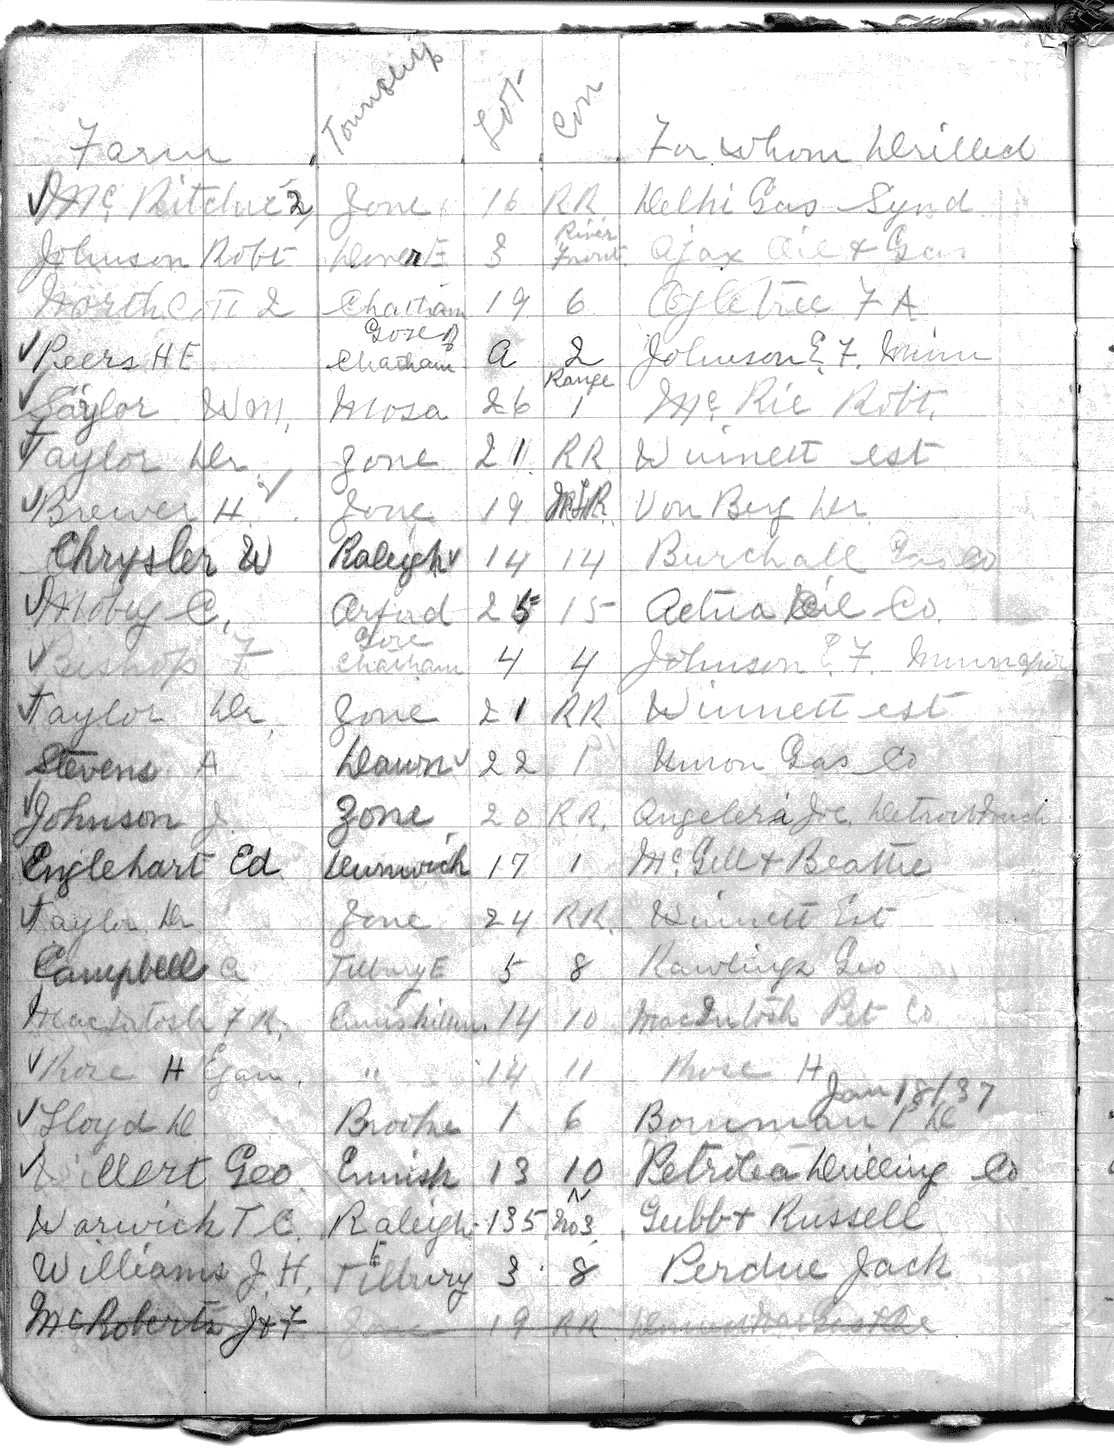 Farm Township Lot Con For whom Drilled
✓ McRitchie 2 Zone 16 RR Delhi Gas Synd
Johnson Robt Dover E 3 River Front Ajax Oil & Gas
Northcott 2 Chatham 19 6 Ogletree F A
✓ Peers H E Gore of Chatham A 2 Johnson E. F. Minn
✓ Taylor Wm, Mosa 26 Range 1 McRie Robt.
Taylor Dr Zone 21 RR Winnett est
✓ Brewer H. Zone 19 Von Berg Dr.
Chrysler W Raleigh ✓ 14 14 Burchall Gas Co
✓ Moby C, Orford 25 15 Aetna Oil Co.
✓ Bishop F Gore Chatham 4 4 Johnson E. F.
Taylor Dr, Zone 21 RR Winnett est
Stevens A Dawn ✓ 22 Union Gas Co
✓ Johnson J. Zone 20 RR. Joe, Detroit
Englehart Ed Dunwich 17 1 McGill & Beattie
Taylor Dr Zone 24 RR. Winnett Est
Campbell A Tilbury E 5 8 Rawlings Geo
MacIntosh F R, Enniskillen 14 10 MacIntosh Pet Co
✓ Rose H Egan. " 14 11 Rose H
Jan 18/37
✓ Lloyd D Brooke 1 6 Bowman P D
✓ Willert Geo. Ennisk 13 10 Petrolea Drilling Co
Warwick T C. Raleigh 135 N No 3 Gubb & Russell
Williams J. H. Tilbury E 3 8 Perdue Jack
McRoberts J & F Zone 19 RR